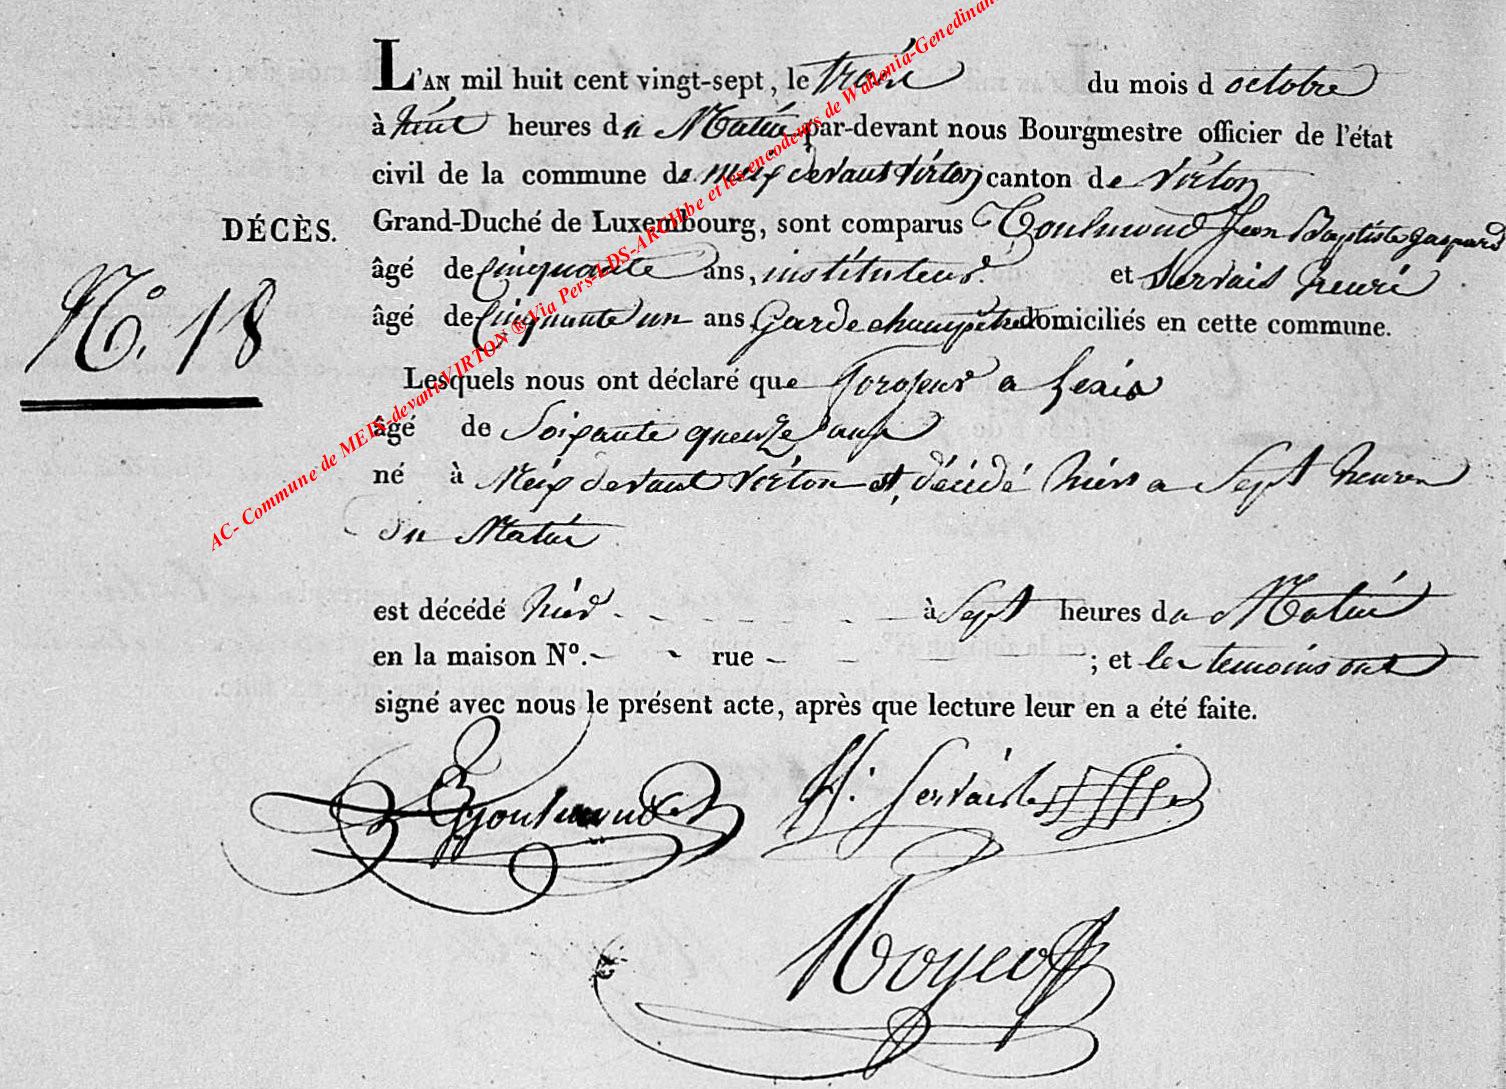 L'AN mil huit cent vingt-sept, le trois du mois d octobre
à huit heures du Matin par-devant nous Bourgmestre officier de l'état
civil de la commune de Meix devant Virton canton de Virton
Grand-Duché de Luxembourg, sont comparus Goulmend Jean Baptiste gaspard
DÉCÈS.
âgé de Cinquante ans, instituteur et Servais henri
N.° 18
âgé de Cinquante un ans Garde champêtre domiciliés en cette commune.
Lesquels nous ont déclaré que
âgé de Soixante quenze ans
né à Meix devant Virton est, décidé hier a Sept heures
du Matin
est décédé hier à Sept heures du Matin
en la maison N°. - - rue - - - ; et les temoins ont
signé avec nous le présent acte, après que lecture leur en a été faite.
H. Servais
AC- Commune de MEIX-devant-VIRTON ® Via Pers-LDS-ARCH.be et les encodeurs de Wallonia-Genedinan